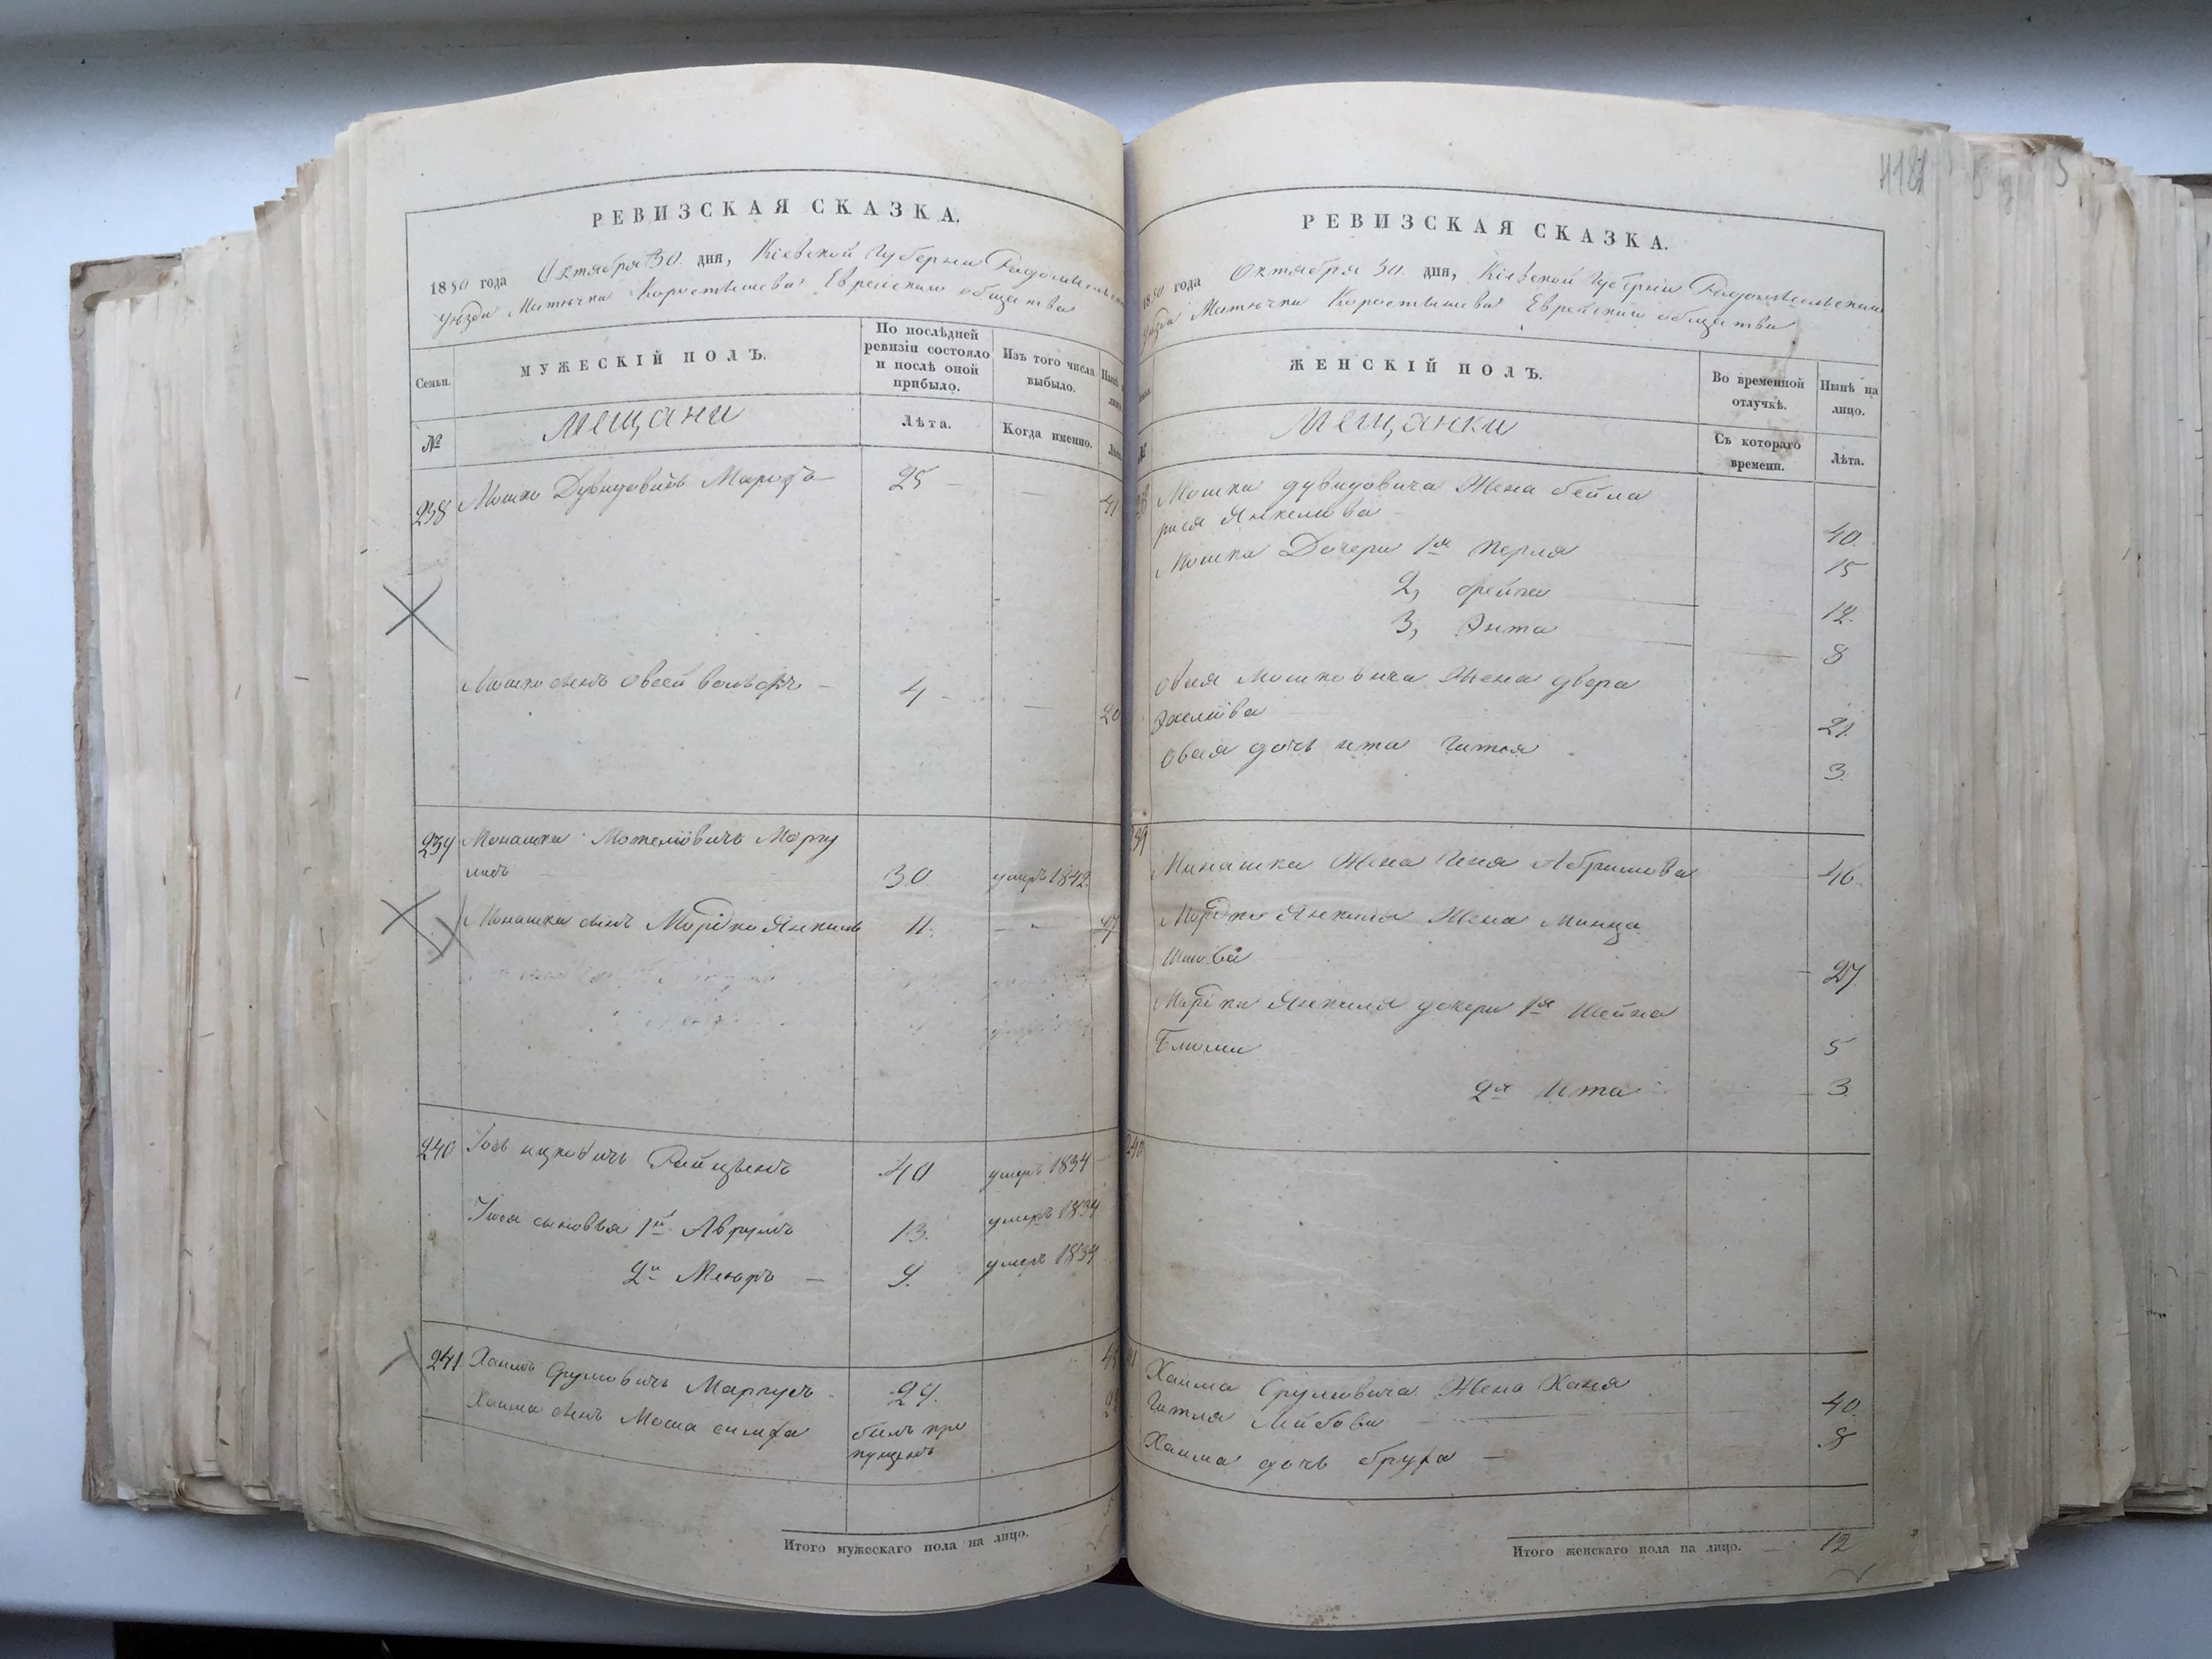 РЕВИЗСКАЯ СКАЗКА.
1850 года Октября 30. дня, Кіевской Губерніи Радомысльскаго
уѣзда Мѣстечка Коростышева Еврейскаго общества
Семьи.
МУЖЕСКІЙ ПОЛЪ.
По послѣдней ревизіи состояло и послѣ оной прибыло.
Изъ того числа выбыло.
№
Мещани
Лѣта.
Когда именно.
238 Мошко Дувидовичъ 25 — 41
Мошко сынъ Овсей Вольфъ — 4 — 20
239 Монашка Маргу
лисъ 30 умеръ 1842.
Монашка сынъ Мордко Янкель 11. 27
240 Іось Ицковичъ 40 умеръ 1834
Іося сыновья 1й Аврумъ 13. умеръ 1834
2й Меюръ — 9. умеръ 1834
241 Хаимъ Срулевичъ Маргулъ 29. 45
Хаима сынъ Моша Симха былъ про
пущенъ
Итого мужескаго пола на лицо.
4181
РЕВИЗСКАЯ СКАЗКА.
1850 года Октября 30. дня, Кіевской Губерніи Радомысльскаго
уѣзда Мѣстечка Коростышева Еврейскаго общества
ЖЕНСКІЙ ПОЛЪ.
Во временной отлучкѣ.
Нынѣ на лицо.
№
Мещанки
Съ котораго времени.
Лѣта.
Мошка Дувидовича Жена Бейла
Рися Янкелева 40.
Мошка Дочери 1я Перля 15
2, Фрейна 12.
3, Энта 8
Овсея Мошковича Жена Двера
21.
Овсея дочь Ита Читля 3.
239
Монашка Жена Геня Абрамова 46.
Мордка Янкеля Жена Минца
27
Мордка Янкеля дочери 1я Шейна
Блюми 5
2я Ита 3
240
241 Хаима Срулевича Жена Хана
Читля Лейбова 40.
Хаима дочь Бруха — 8
Итого женскаго пола на лицо. — 12